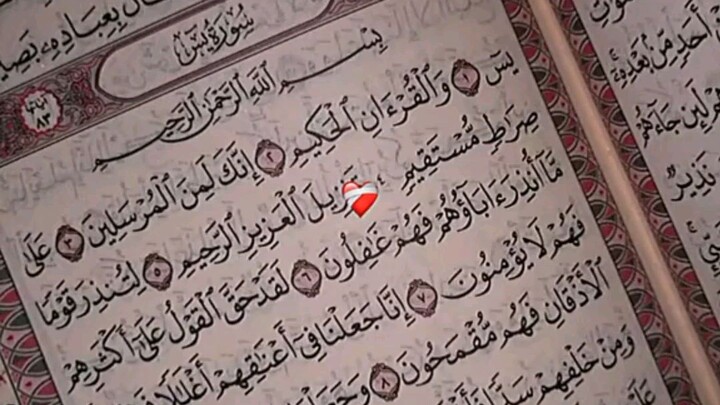 بِعِبَادِهِۦ بَصِيرًا
سُورَةُ يسٓ
بِسْمِ ٱللَّهِ ٱلرَّحْمَٰنِ ٱلرَّحِيمِ
يسٓ ١ وَٱلْقُرْءَانِ ٱلْحَكِيمِ ٢ إِنَّكَ لَمِنَ ٱلْمُرْسَلِينَ ٣ عَلَىٰ
صِرَٰطٍ مُّسْتَقِيمٍ تَنزِيلَ ٱلْعَزِيزِ ٱلرَّحِيمِ ٥ لِتُنذِرَ قَوْمًا
مَّآ أُنذِرَ ءَابَآؤُهُمْ فَهُمْ غَٰفِلُونَ ٦ لَقَدْ حَقَّ ٱلْقَوْلُ عَلَىٰٓ أَكْثَرِهِمْ
فَهُمْ لَا يُؤْمِنُونَ ٧ إِنَّا جَعَلْنَا فِىٓ أَعْنَٰقِهِمْ أَغْلَٰلًا
ٱلْأَذْقَانِ فَهُم مُّقْمَحُونَ ٨ وَجَعَلْنَا
وَمِنْ خَلْفِهِمْ سَدًّا
أَحَدٍ مِّنۢ بَعْدِهِۦٓ
جَآءَهُمْ
نَذِيرٌ